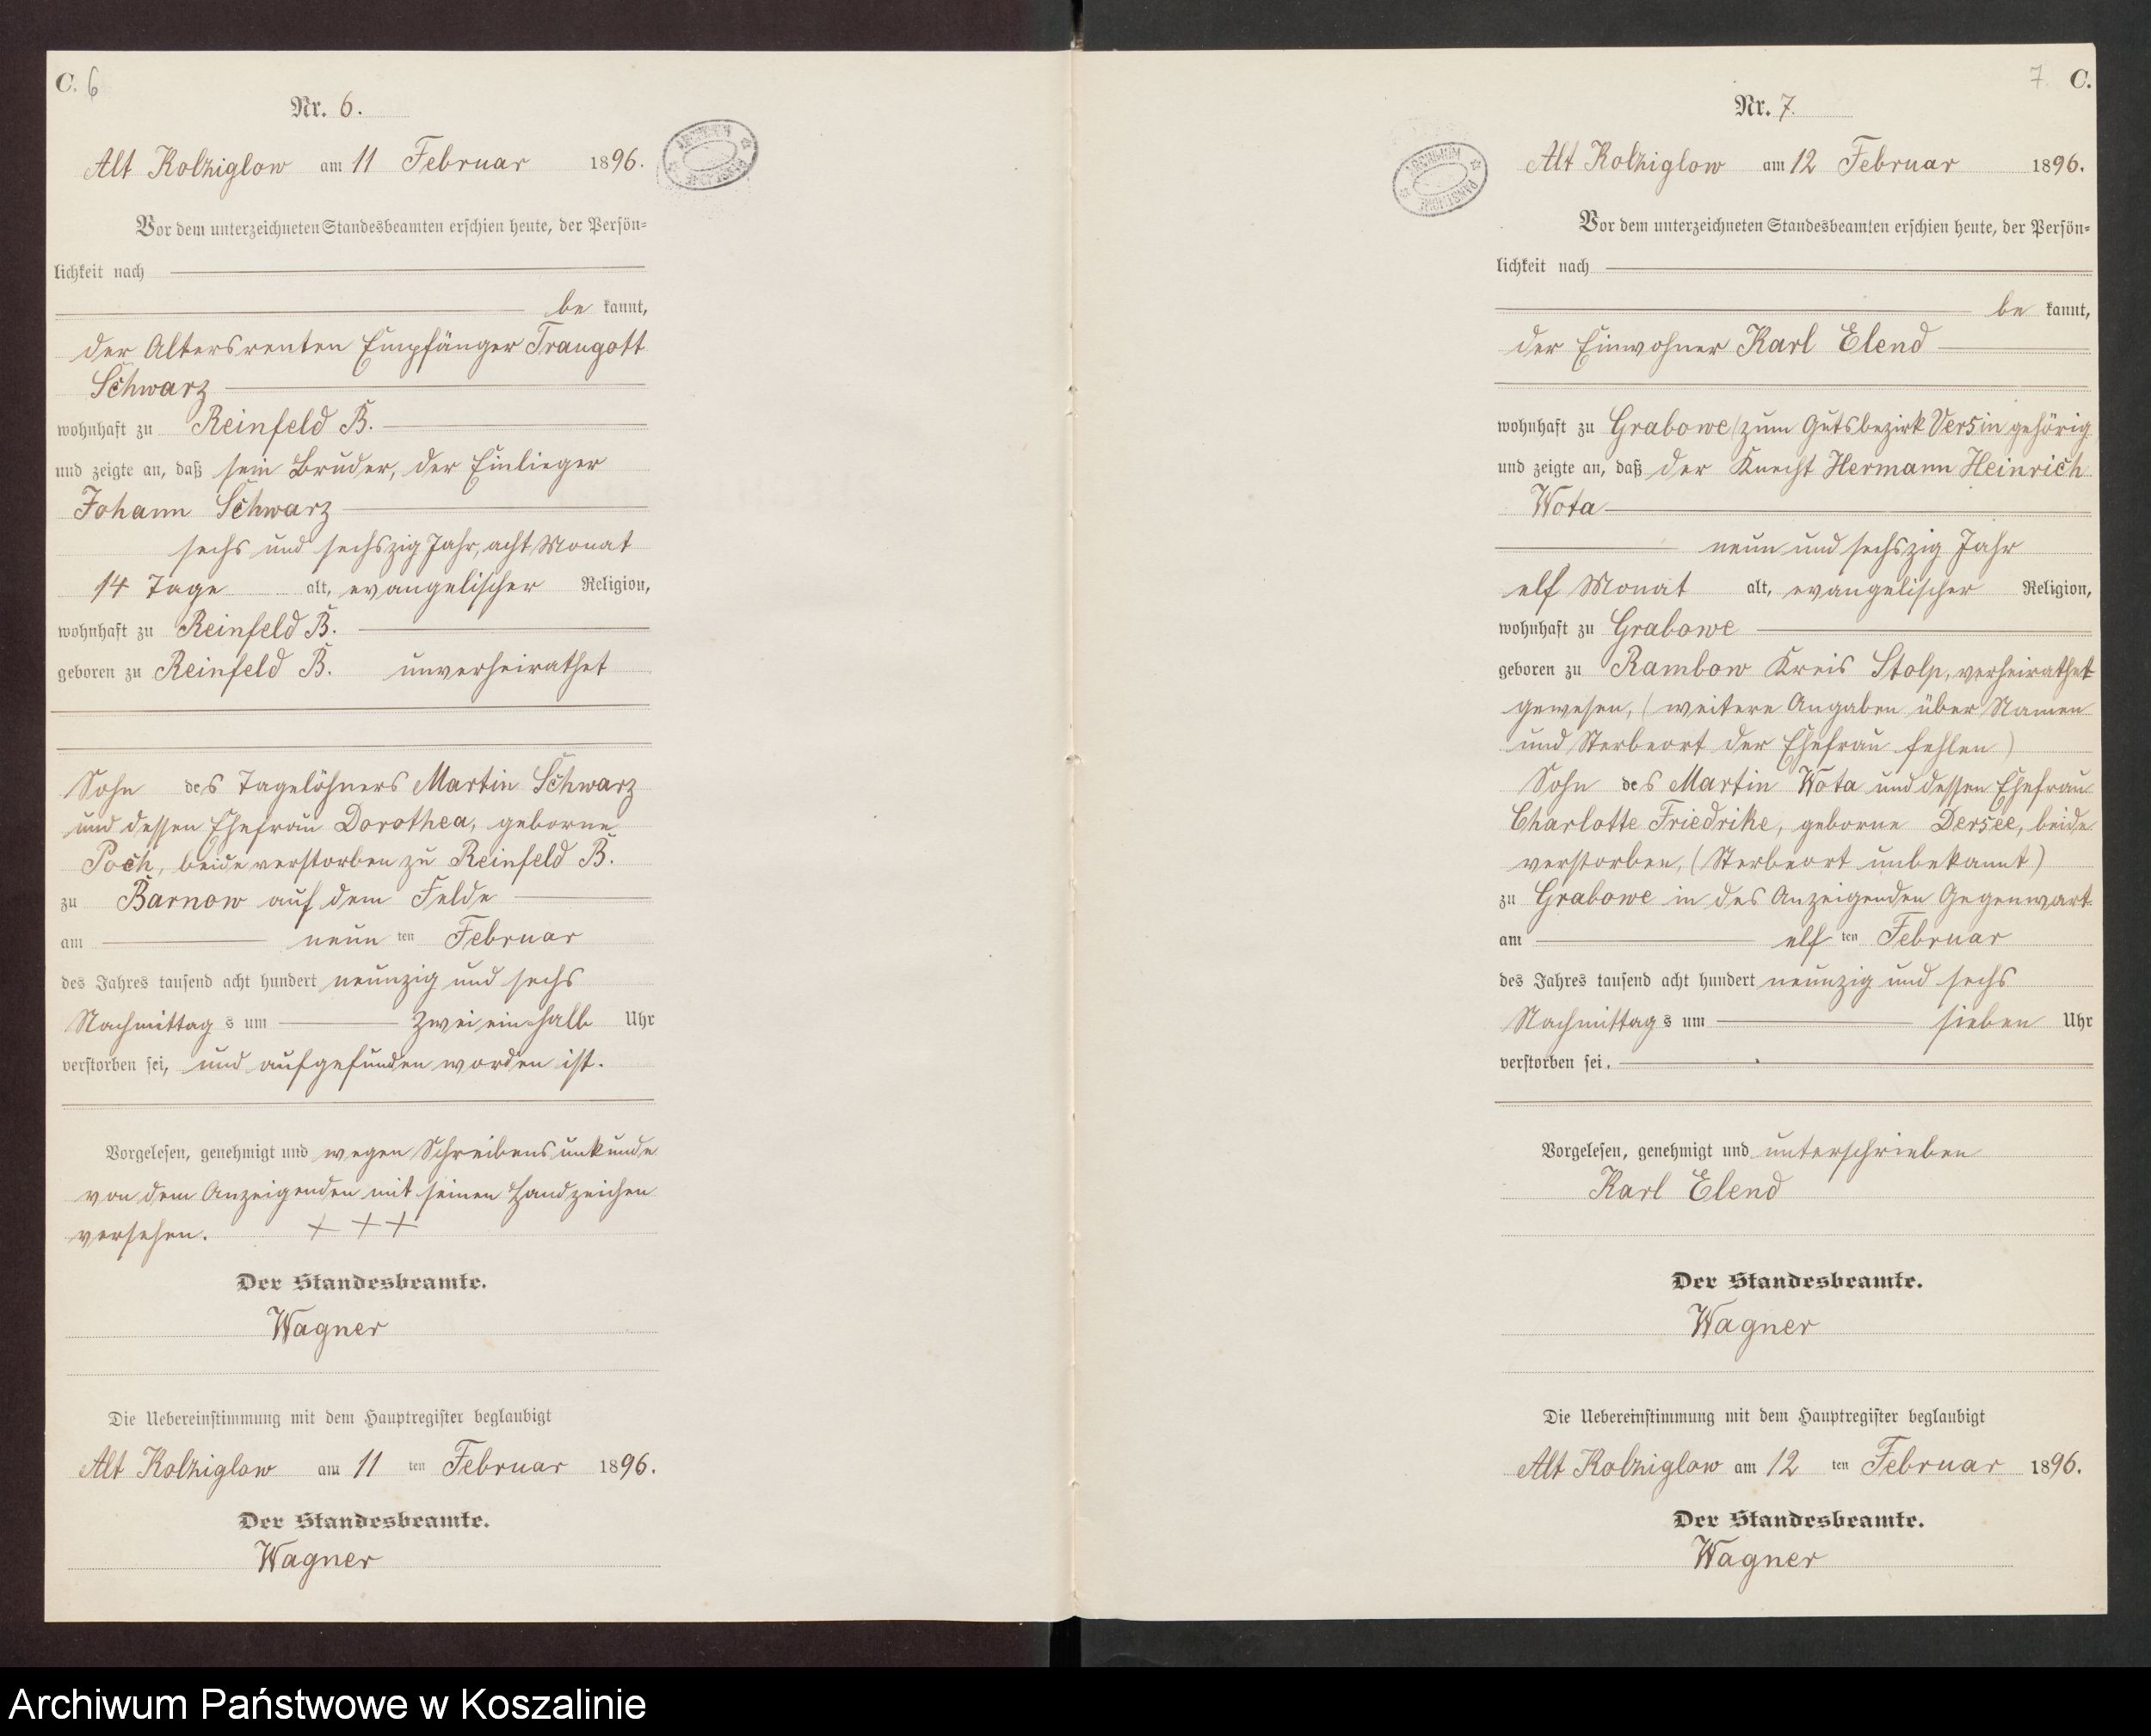 C. 6
Nr. 6.
Alt Kolziglow am 11 Februar 1896.
Vor dem unterzeichneten Standesbeamten erschien heute, der Persön-
lichkeit nach
be kannt,
der Altersrenten Empfänger Traugott
Schwarz
wohnhaft zu Reinfeld B.
und zeigte an, daß sein Bruder, der Einlieger
Johann Schwarz
sechs und sechszig Jahr, acht Monat
14 Tage alt, evangelischer Religion,
wohnhaft zu Reinfeld B.
geboren zu Reinfeld B. unverheirathet
Sohn des Tagelöhners Martin Schwarz
und dessen Ehefrau Dorothea, geborne
Poch, beide verstorben zu Reinfeld B.
zu Barnow auf dem Felde
am neun ten Februar
des Jahres tausend acht hundert neunzig und sechs
Nachmittag s um zwei einhalb Uhr
verstorben sei, und aufgefunden worden ist.
Vorgelesen, genehmigt und wegen Schreibensunkunde
von dem Anzeigenden mit seinen Handzeichen
versehen. + + +
Der Standesbeamte.
Wagner
Die Uebereinstimmung mit dem Hauptregister beglaubigt
Alt Kolziglow am 11 ten Februar 1896.
Der Standesbeamte.
Wagner
7. C.
Nr. 7.
Alt Kolziglow am 12 Februar 1896.
Vor dem unterzeichneten Standesbeamten erschien heute, der Persön-
lichkeit nach
be kannt,
der Einwohner Karl Elend
wohnhaft zu Grabowe (zum Gutsbezirk Versin gehörig
und zeigte an, daß der Knecht Hermann Heinrich
Wota
neun und sechszig Jahr
elf Monat alt, evangelischer Religion,
wohnhaft zu Grabowe
geboren zu Rambow Kreis Stolp, verheirathet
gewesen, (weitere Angaben über Namen
und Sterbeort der Ehefrau fehlen)
Sohn des Martin Wota und dessen Ehefrau
Charlotte Friedrike, geborne Dersee, beide
verstorben, (Sterbeort unbekannt)
zu Grabowe in des Anzeigenden Gegenwart
am elf ten Februar
des Jahres tausend acht hundert neunzig und sechs
Nachmittag s um sieben Uhr
verstorben sei.
Vorgelesen, genehmigt und unterschrieben
Karl Elend
Der Standesbeamte.
Wagner
Die Uebereinstimmung mit dem Hauptregister beglaubigt
Alt Kolziglow am 12 ten Februar 1896.
Der Standesbeamte.
Wagner
Archiwum Państwowe w Koszalinie